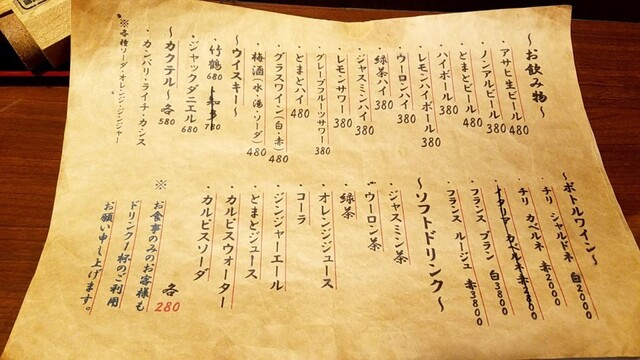 ～お飲み物～
・アサヒ生ビール 480
・ノンアルビール 380
・とまとビール 480
・ハイボール 380
・レモンハイボール 380
・ウーロンハイ 380
・緑茶ハイ 380
・ジャスミンハイ 380
・レモンサワー 380
・グレープフルーツサワー 380
・とまとハイ 480
・グラスワイン(白・赤) 480
・梅酒(水・湯・ソーダ) 480
～ウイスキー～
・竹鶴 680
・知多 780
・ジャックダニエル 680
～カクテル～ 各 580
・カンパリ・ライチ・カシス
※各種ソーダ・オレンジ・ジンジャー
～ボトルワイン～
・チリ シャルドネ 白2000
・チリ カベルネ 赤2000
・イタリア カベルネ 赤2800
・フランス ブラン 白3800
・フランス ルージュ 赤3800
～ソフトドリンク～
・ジャスミン茶
・ウーロン茶
・緑茶
・オレンジジュース
・コーラ
・ジンジャーエール
・とまとジュース
・カルピスウォーター
・カルピスソーダ
各 280
※お食事のみのお客様も
ドリンク一杯のご利用
お願い申し上げます。